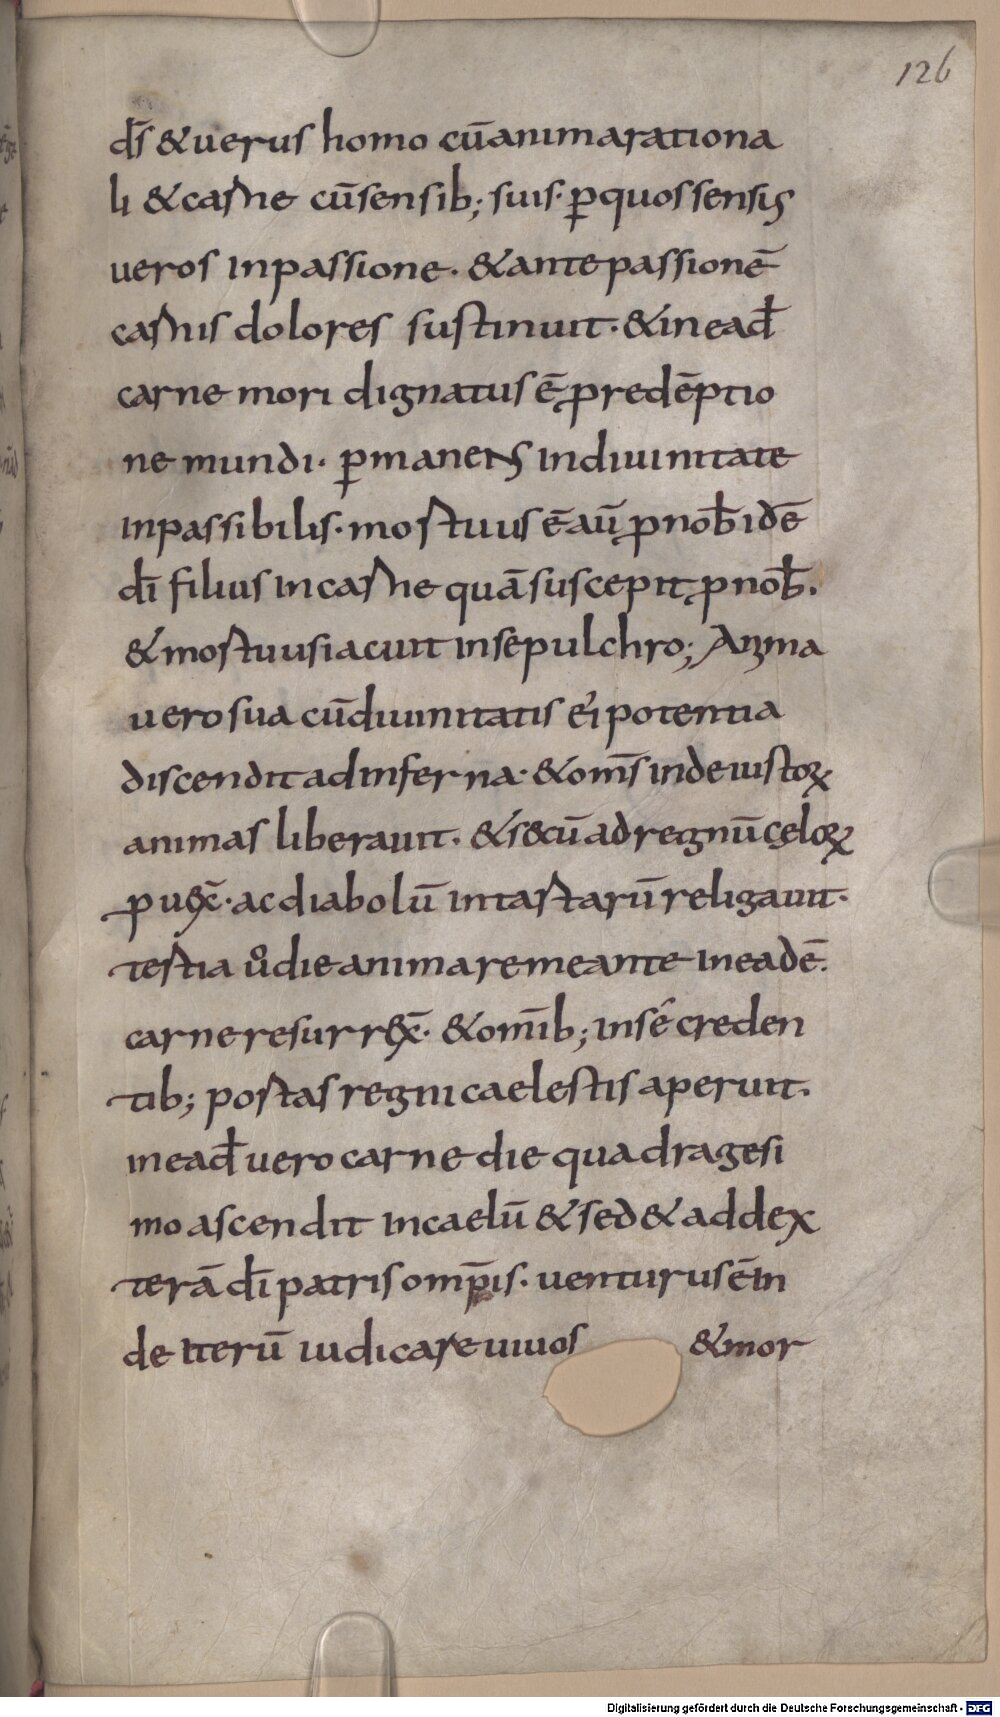 126
ds̄ & uerus homo cū anima rationa
li & carne cū sensib; suis· ꝑ quos sensus
ueros in passione· & ante passionē
carnis dolores sustinuit· & in ead̄
carne mori dignatus ē ꝓ redēptio
ne mundi· ꝑmanens in diuinitate
inpassibilis· mortuus ē aū ꝓ nob̄ idē
dī filius in carne quā suscepit ꝓ nob̄.
& mortuus iacuit in sepulchro; Anima
uero sua cū diuinitatis ei potentia
discendit ad inferna· & om̄s inde iustoꝝ
animas liberauit· & secū ad regnū cęloꝝ
ꝓuex̄· ac diabolū in tartarū religauit·
tertia uº die anima remeante in eadē.
carne resurrex̄· & om̄ib; in sé creden
tib; portas regni caelestis aperuit.
in ead̄ uero carne die quadragesi
mo ascendit in caelū & sed& ad dex
terā dī patris omp̄is· uenturus ē in
de iterū iudicare uiuos & mor
Digitalisierung gefördert durch die Deutsche Forschungsgemeinschaft - DFG